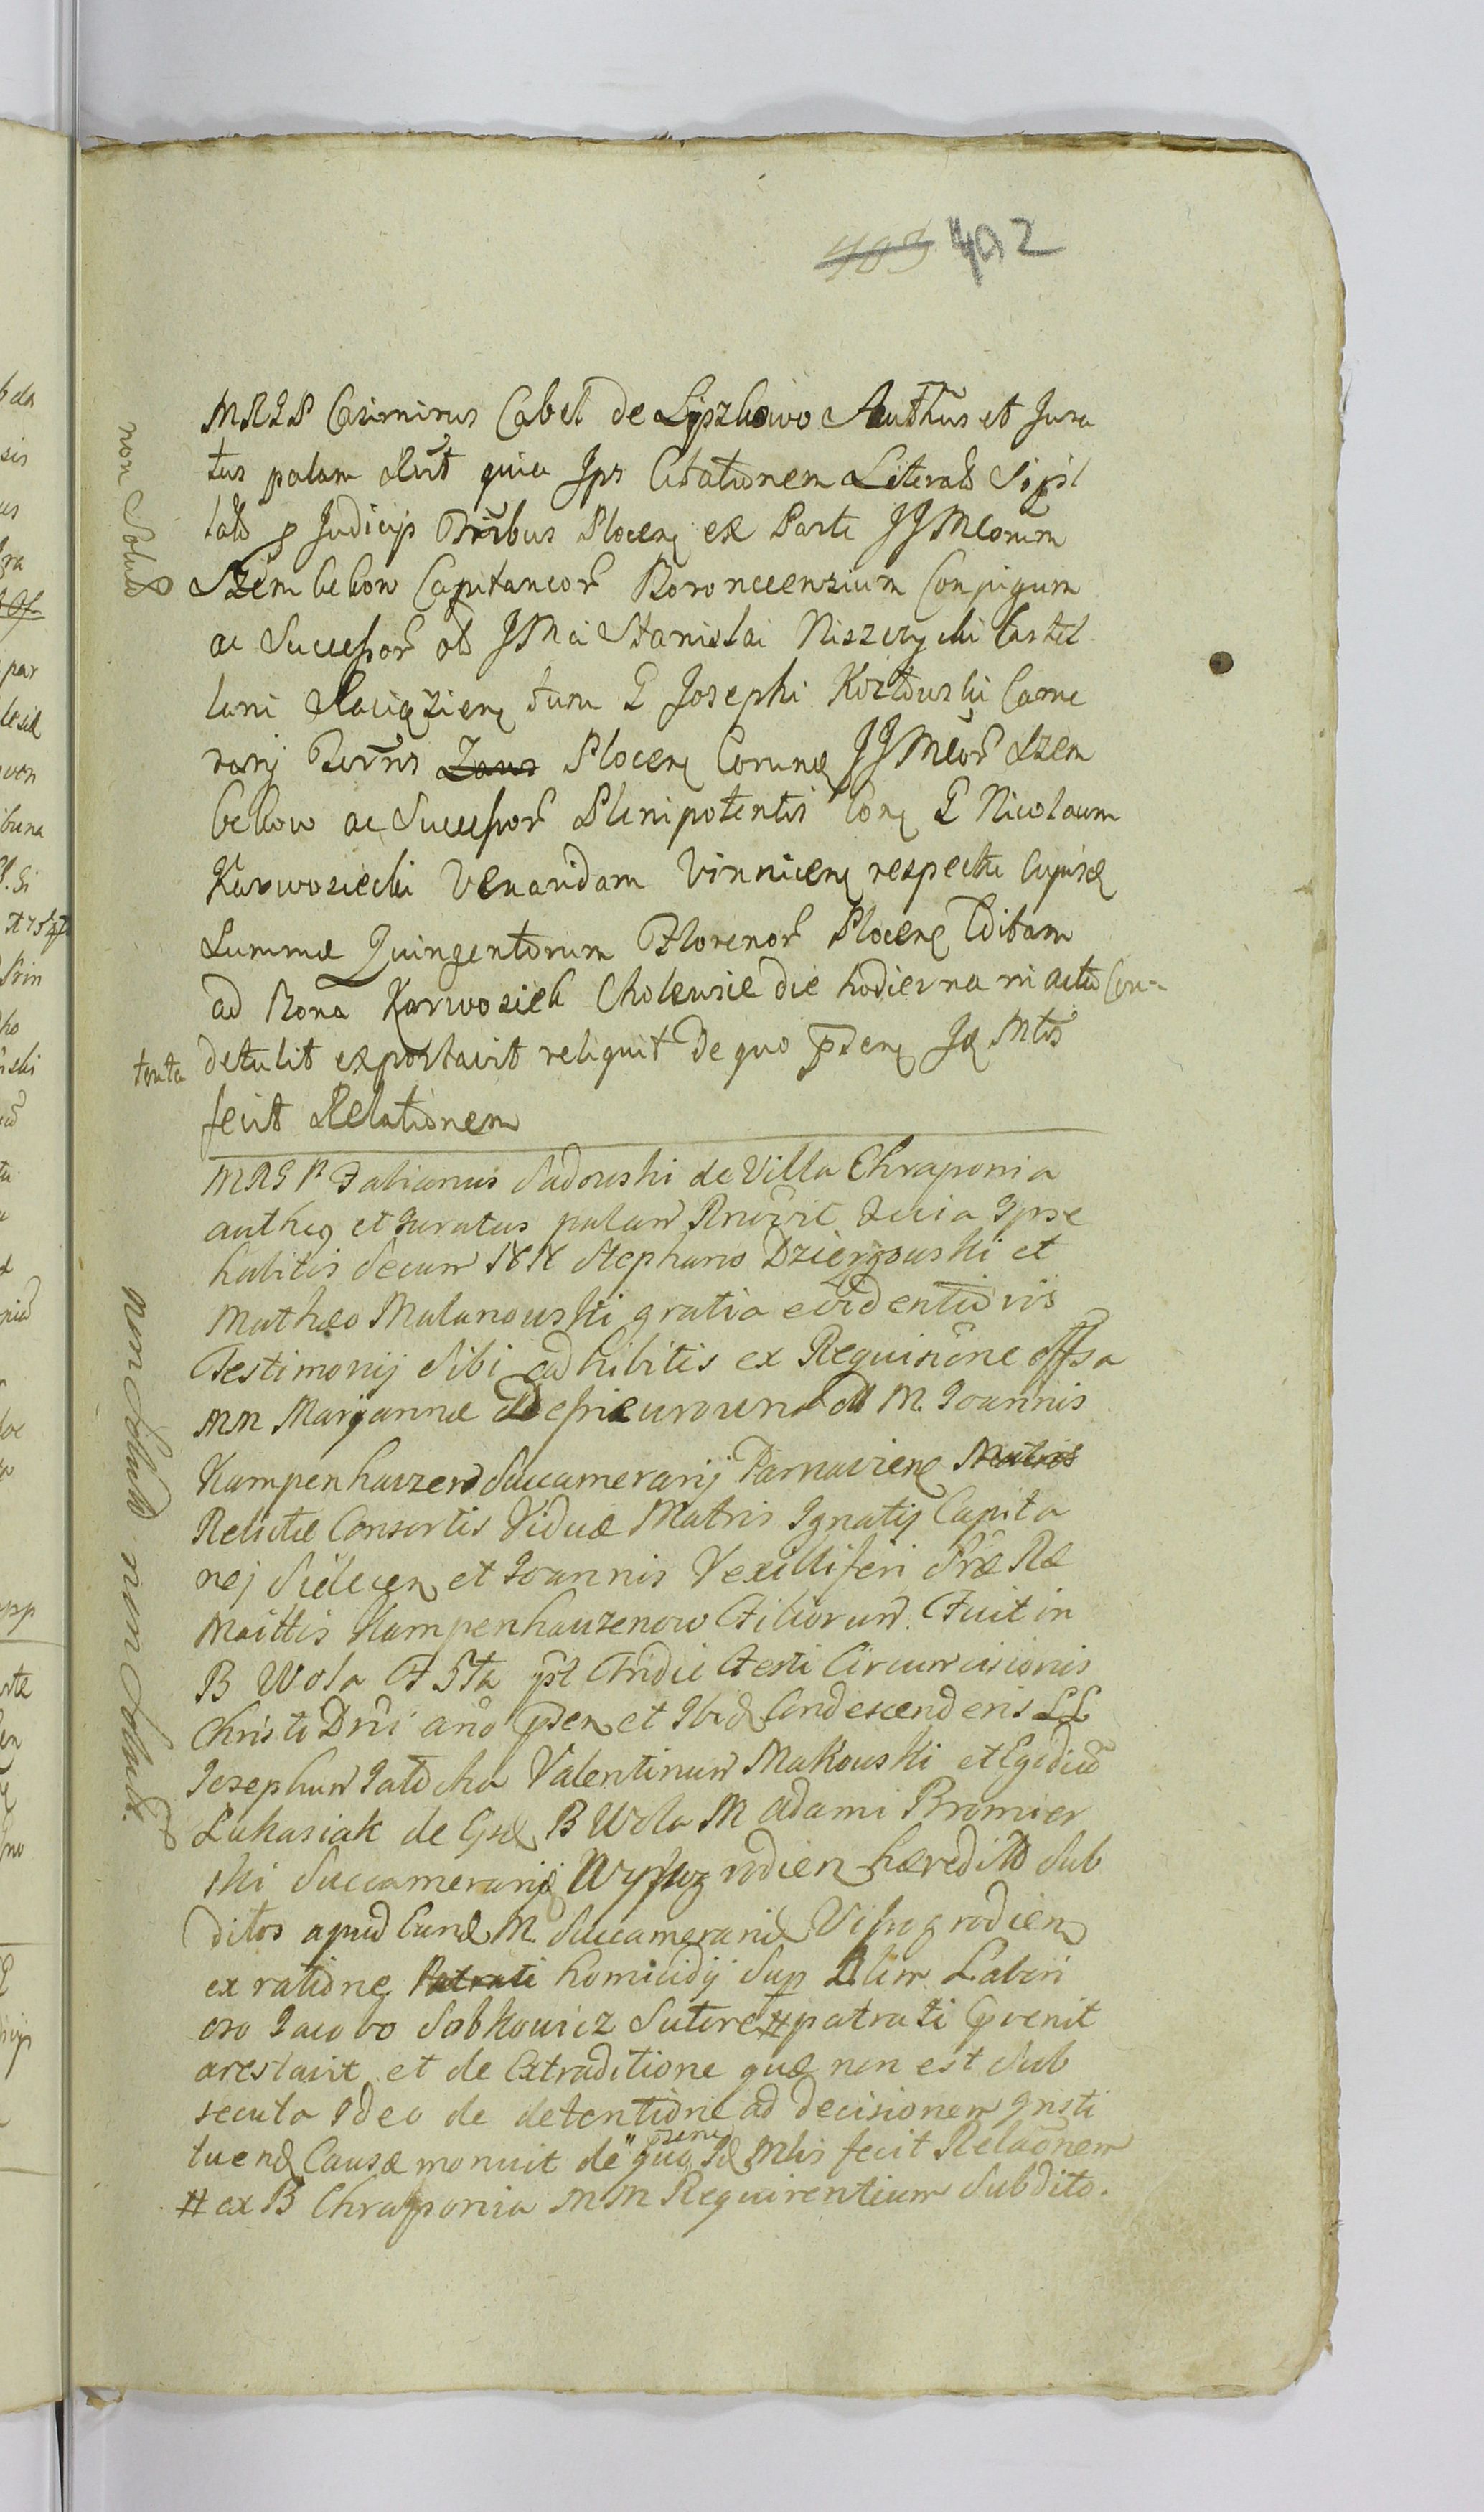 403 402
MRGP Casimirus Cabel de Lyszkowo Authus et Jura
tus palam Rvit quia Ips Citationem Literalr Sigil
latr p Judicijs Trribus Plocen ex Parte JJMcorum
Szembekow Capitaneor Boronecensium Conjugum
ac Successor olr JMci Stanislai Niszczycki Castel
lani Raciązien tum G Josephi Kozłowski Came
rarij Terrris Zaws Plocen Corund JJMcor Szem
bekow ac Successor Plenipotentis Con G Nicolaum
Karwosiecki Venandam Vinnicen respectu cujusd
Summæ Quingentorum Florenor Plocen Editam
ad Bona Karwosieki Cholewice die hodierna in actu Con-
tenta detulit exportavit reliquit De quo pnsen Jd Mtris
fecit Relationem
non Solut
MRGP Fabianus Sadowski de Villa Chraponia
authq et Juratus palam Rnovit Quia Ipse
habitis Secum NN Stephano Dziergowski et
Matheo Malanowski gratia evidentioris
Testimonij Sibi adhibitis ex Requisiône offsa
MM Maryannæ M. Joannis
Kampenhauzen Succamerarij Parnavien Matris
Relictæ Consortis Viduæ Matris Ignatij Capita
nej et Joannis Vexilliferi Sræ Ræ
Maittis Kampenhauzenow Filiorum. Fuit in
B Wola F 5ta pst Tridie Festi Circumcisionis
Christi Dni ano psen et Ibid Condescenderis LL
Josephum Valentinum Makowski et Egidiu
Lukasiak de Gsd B Wola M Adami Bromier
ski Succamerarij Wyszogrodien hæredito Sub
ditos apud Eund M. Succamerariu Vissogrodien
ex ratione Patrati homicidij Sup Olim Labori
oso Jacobo Sobkowicz Sutore # patrati pvenit
arestavit et de Extraditione quæ non est Sub
secuta Ideo de detentione ad decisionem Insti
tuend Causæ monuit de quo psen Id Mtris fecit Relaônem
# ex B Chraponia MM Requirentium Subdito.
non Solut non Solut.